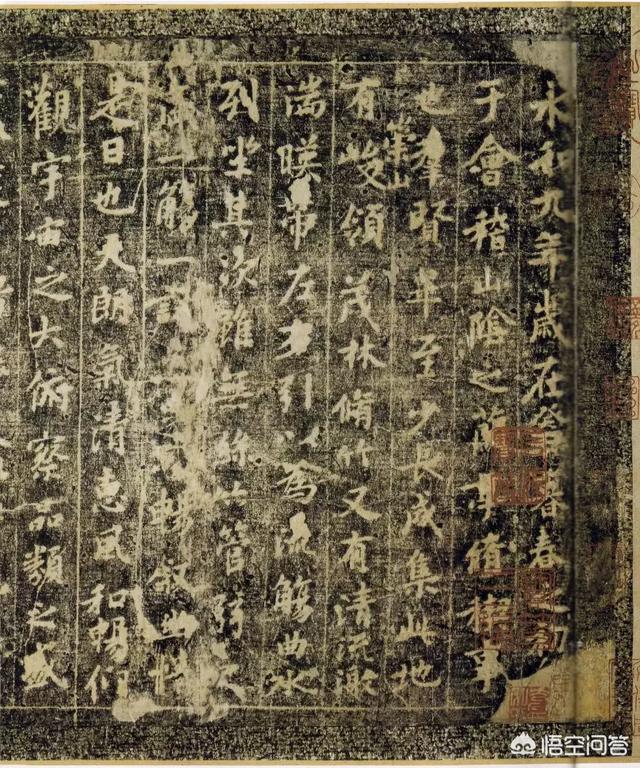 永和九年歲在暮春之初
于會稽山陰之蘭亭脩稧事
也羣賢畢至少長咸集此地
崇山
有峻領茂林脩竹又有清流激
湍暎帶左右引以為流觴曲水
列坐其次雖無絲竹管弦之
盛一觴一詠暢敘幽情
是日也天朗氣清惠風和暢仰
觀宇宙之大俯察品類之盛
悟空问答